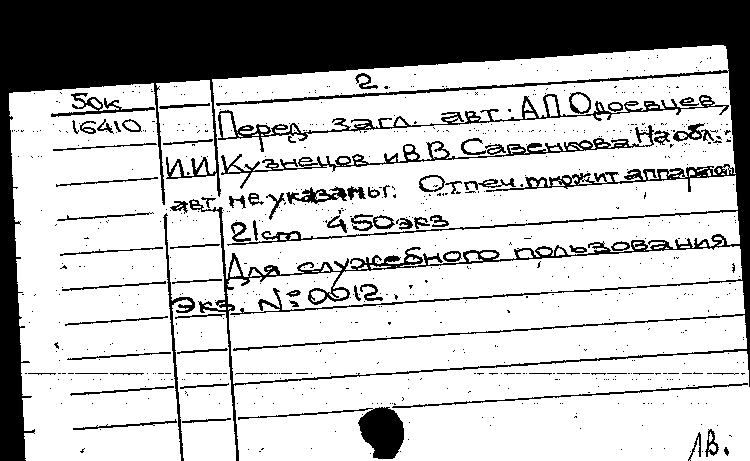 2.
50к
16410
Перед. загл. авт: А.П. Одоевцев,
И.И. Кузнецов и В.В. Савенкова. На обл.:
авт. не указаны. Отпеч. множит. аппаратом
21 см. 450 экз
Для служебного пользования
Экз. №:0012.
1В.